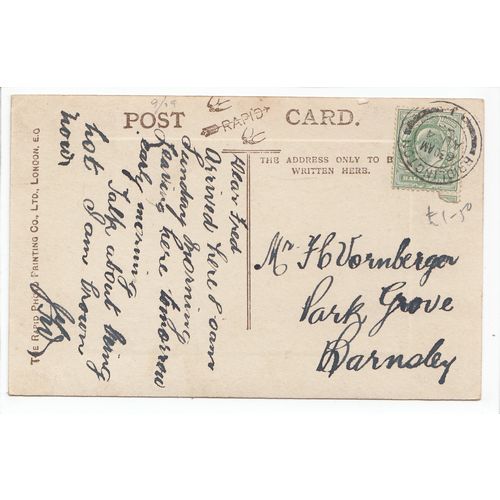 9/19
POST CARD.
RAPID
THE ADDRESS ONLY TO BE
WRITTEN HERE.
HALF
BRIDLINGTON
£1-50
Dear Fred
Arrived here 8 am
Sunday morning
leaving here tomorrow
early morning
Talk about being
hot I am brown
now
JW
Mr. H Vornberger
Park Grove
Barnsley
THE RAPID PHOTO PRINTING CO., LTD., LONDON, E.C.